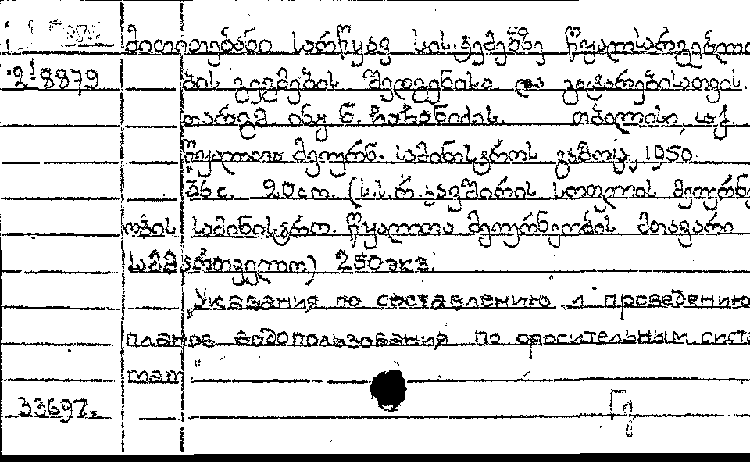 მითითებანი სარწყავ სისტემებზე წყალსარგებლო
2/8879 ბის გეგმების შედგენისა და გატარებისათვის.
თარგმ. ინჟ. ნ. თბილისი, საქ.
წყალთა მეურნ. სამინისტროს გამოც. 1950.
20 cm. (ს.ს.რ. კავშირის სოფლის მეურნე
ობის სამინისტრო. წყალთა მეურნეობის მთავარი
სამმართველო) 250 экз.
„Указания по составлению и проведению
планов водопользования по оросительным систе
мам"
33697.